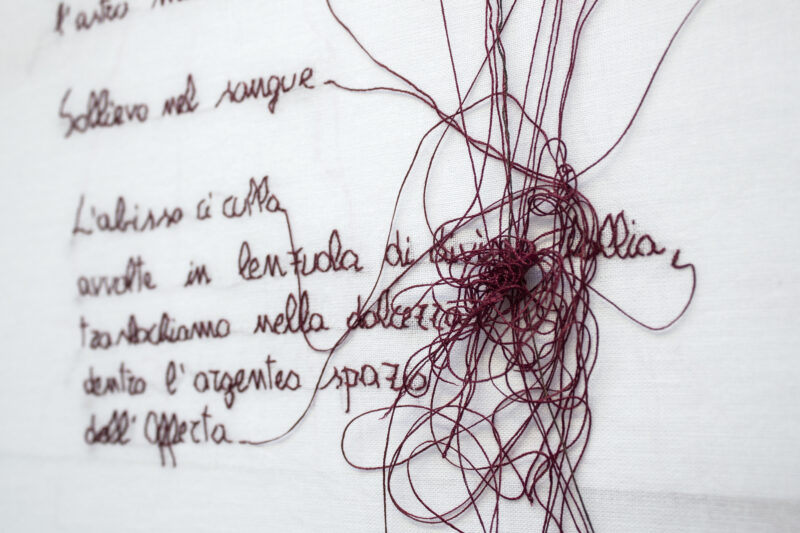 l'astro
Sollievo nel sangue
L'abisso ci culla
avvolte in lenzuola di follia,
nella dolcezza
dentro l'argenteo spazio
dell'Offerta